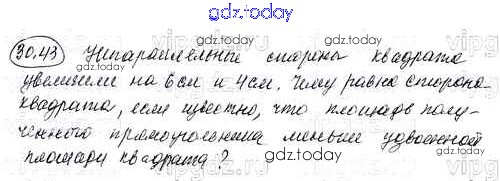 gdz.today
30.43 Непараллельные стороны квадрата
увеличили на 6см и 4см. Чему равна сторона
квадрата, если известно, что площадь полу-
ченного прямоугольника меньше удвоенной
площади квадрата?
gdz.today